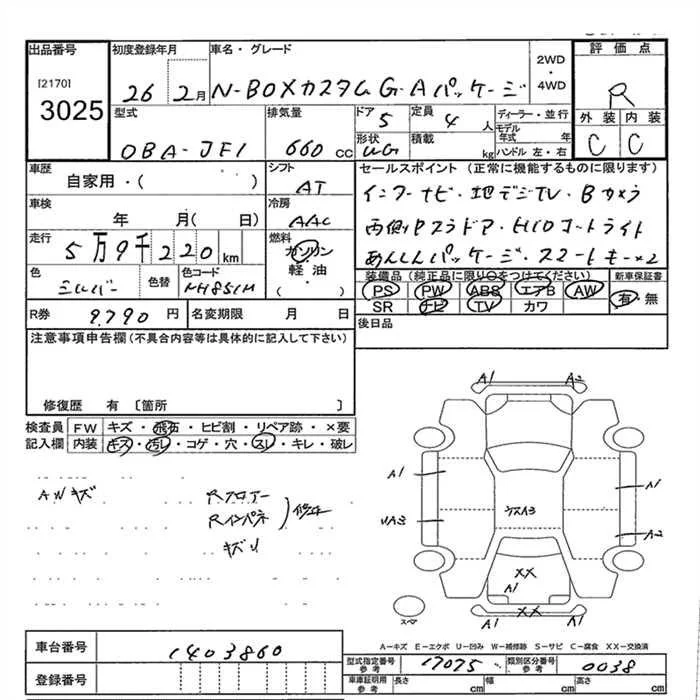 出品番号
[2170]
3025
初度登録年月
26 2月
車名・グレード
N-BOXカスタム G・Aパッケージ
2WD
・
4WD
評価点
R
外装 内装
C C
型式
DBA-JF1
排気量
660 cc
ドア
5
定員
4 人
ディーラー・並行
モデル年式 年
形状
積載 kg
ハンドル 左・右
車歴
自家用・( )
シフト
AT
セールスポイント (正常に機能するものに限ります)
インターナビ・地デジTV・Bカメラ
両側Pスラドア・HIDオートライト
あんしんパッケージ・スマートキー×2
車検
年 月( 日)
冷房
AAC
走行
5万9千220km
燃料
ガソリン
軽油
( )
色
シルバー
色替
色コード
NH851M
装備品 (純正品に限り○をつけてください)
PS PW ABS エアB AW
SR ナビ TV カワ
新車保証書
有・無
R券 9,790 円
名変期限 月 日
後日品
注意事項申告欄(不具合内容等は具体的に記入して下さい)
修復歴 有 〔箇所 〕
検査員記入欄
FW キズ・飛石・ヒビ割・リペア跡・×要
内装 キズ・汚レ・コゲ・穴・スレ・キレ・破レ
AWキズ
Rフロアー
Rインパネ
修正
A1 A2
A1 A1
UA3 A3 A2
XX
A1
XX
スペア
A-キズ E-エクボ U-凹み W-補修跡 S-サビ C-腐食 XX-交換済
車台番号 1403860
登録番号
型式指定番号参考 17075
類別区分番号参考 0038
車庫証明用参考 長さ cm 幅 cm 高さ cm